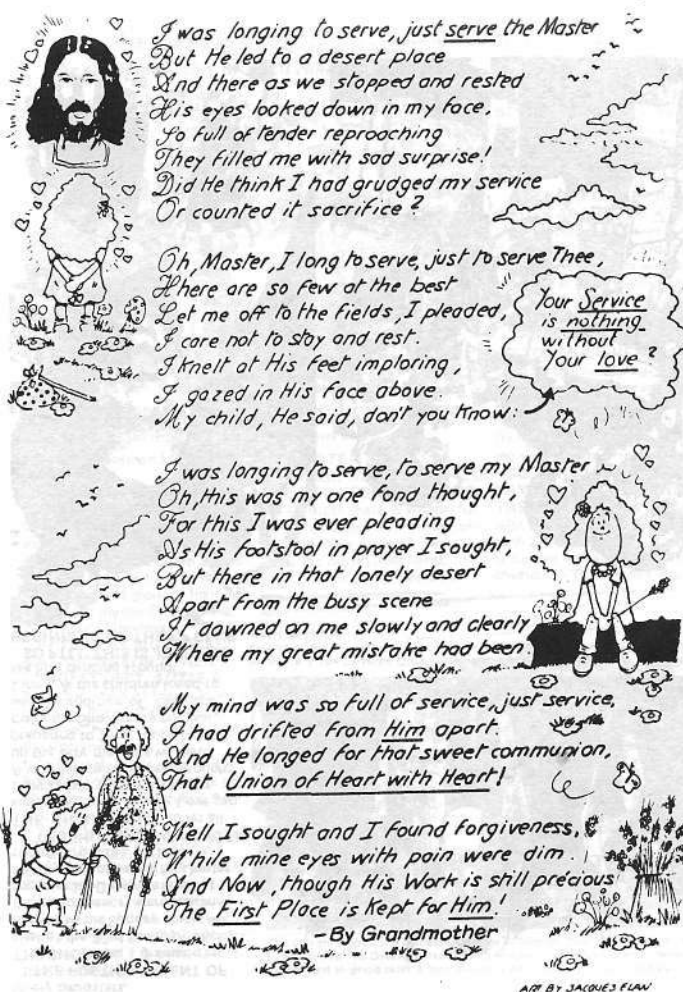 I was longing to serve, just serve the Master
But He led to a desert place
And there as we stopped and rested
His eyes looked down in my face,
So full of tender reproaching
They filled me with sad surprise!
Did He think I had grudged my service
Or counted it sacrifice?
Oh, Master, I long to serve, just to serve Thee,
There are so few at the best
Let me off to the fields, I pleaded,
I care not to stay and rest.
I knelt at His feet imploring,
I gazed in His face above.
My child, He said, don't you know:
Your Service
is nothing
without
Your love?
I was longing to serve, to serve my Master
Oh, this was my one fond thought,
For this I was ever pleading
As His footstool in prayer I sought,
But there in that lonely desert
Apart from the busy scene
It dawned on me slowly and clearly
Where my great mistake had been.
My mind was so full of service, just service,
I had drifted from Him apart.
And He longed for that sweet communion,
That Union of Heart with Heart!
Well I sought and I found forgiveness,
While mine eyes with pain were dim.
And Now, though His Work is still precious
The First Place is Kept for Him!
-By Grandmother
ART BY JACQUES FLAN